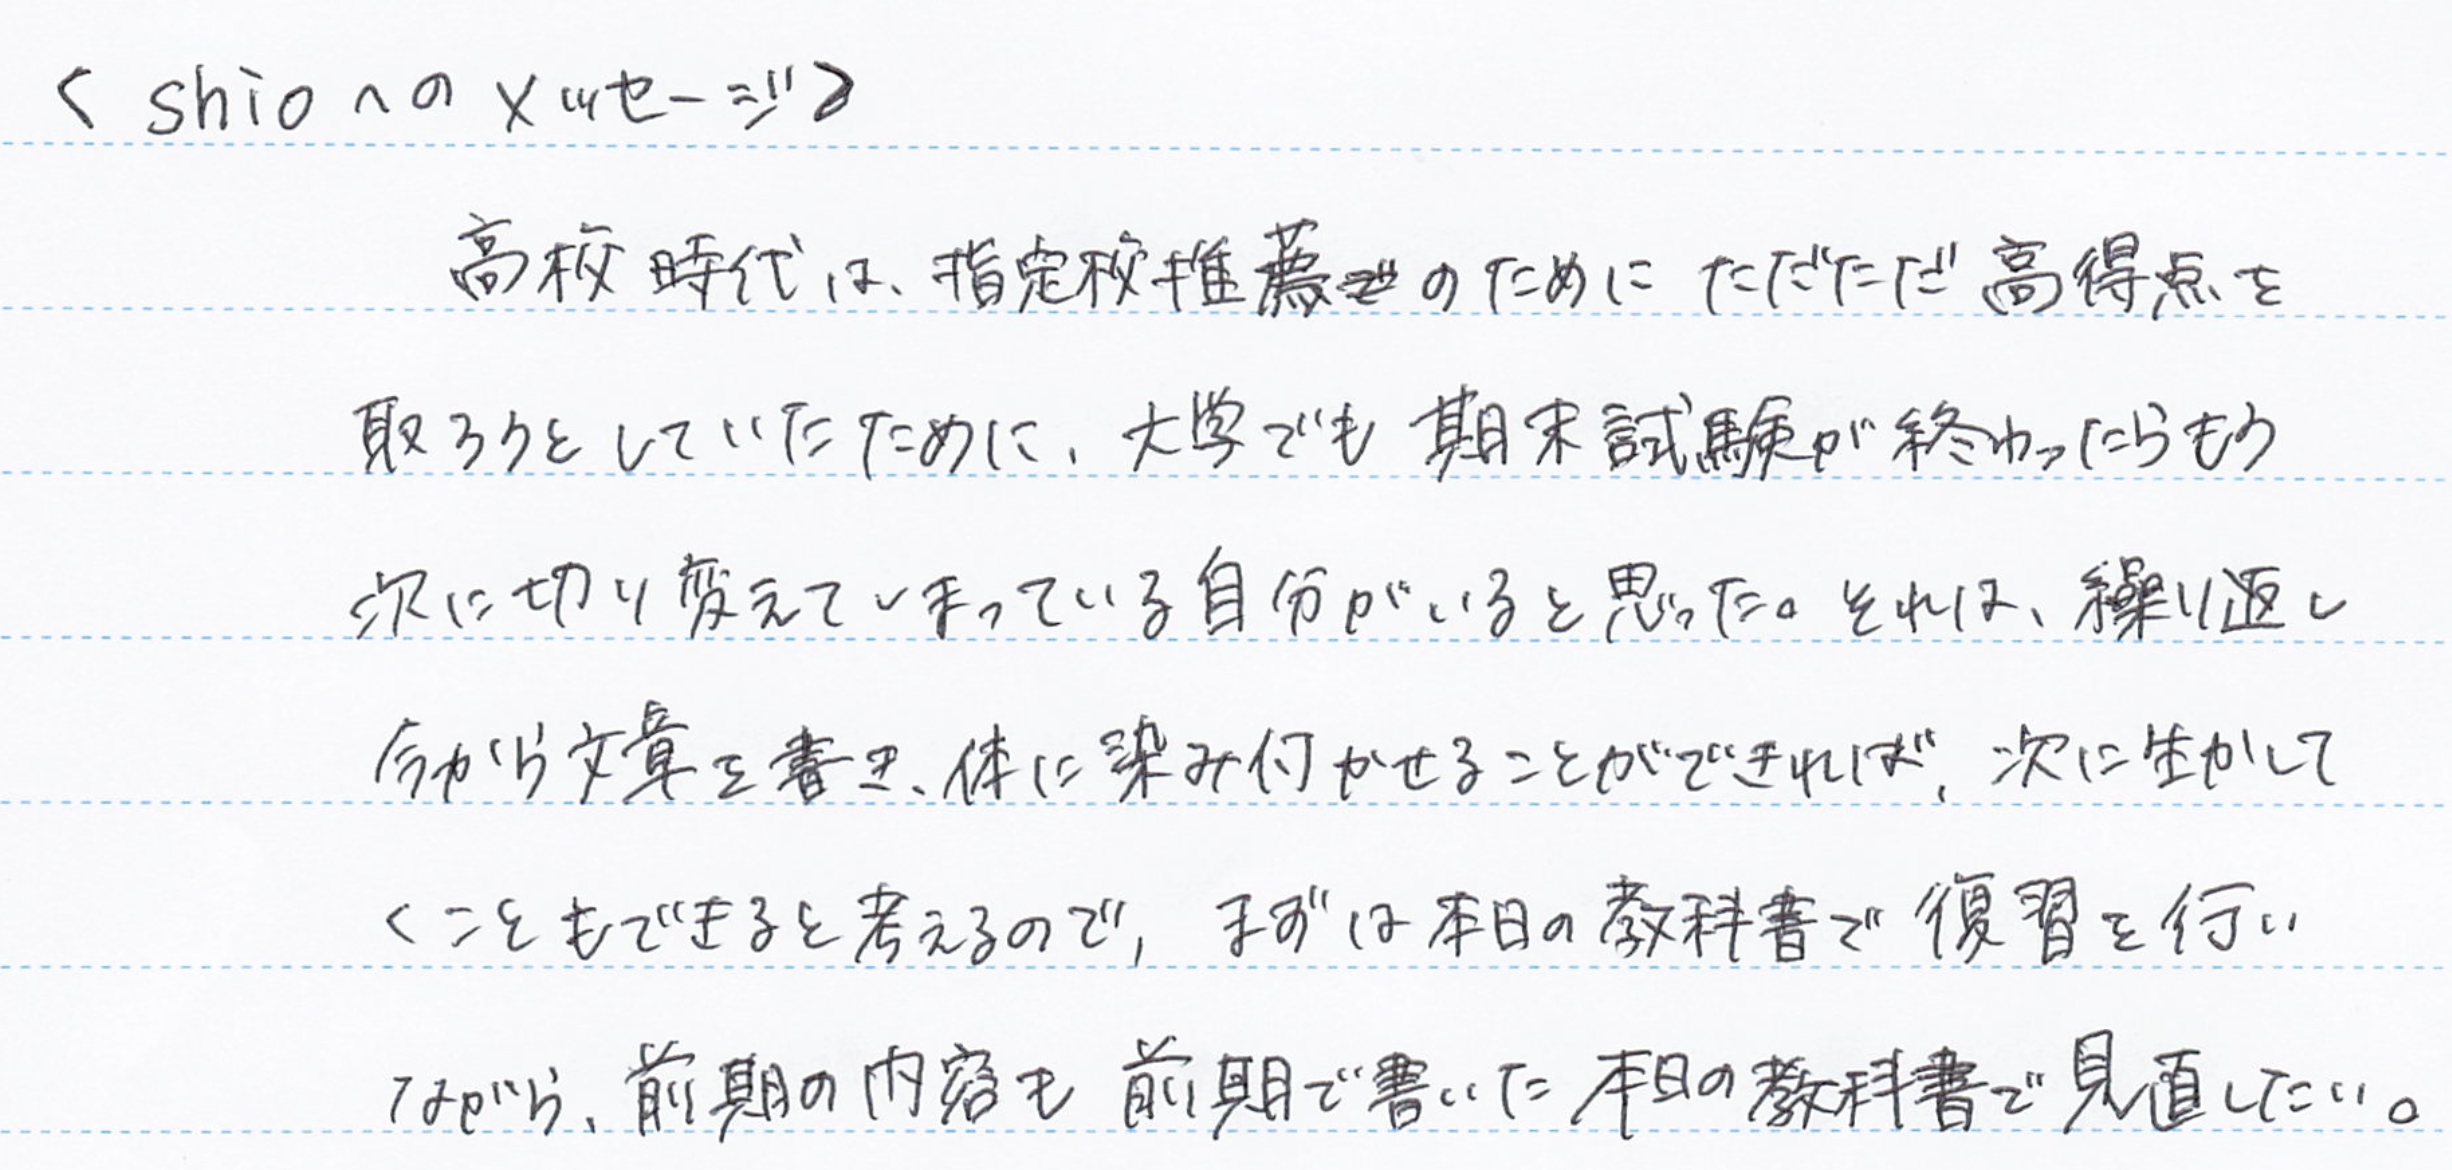 < shioへのメッセージ>
高校時代は、指定校推薦のためにただただ高得点を
取ろうとしていたために、大学でも期末試験が終わったらもう
次に切り変えてしまっている自分がいると思った。それは、繰り返し
今から文章を書き、体に染み付かせることができれば、次に生かして
くこともできると考えるので、まずは本日の教科書で復習を行い
ながら、前期の内容も前期で書いた本日の教科書で見直したい。